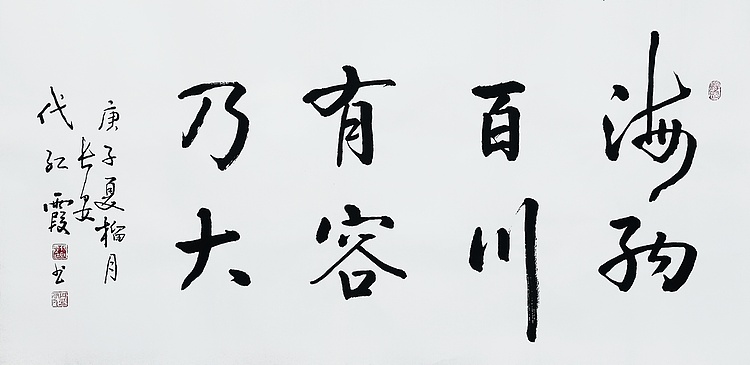 海纳
百川
有容
乃大
庚子夏榴月
长安
代红霞书